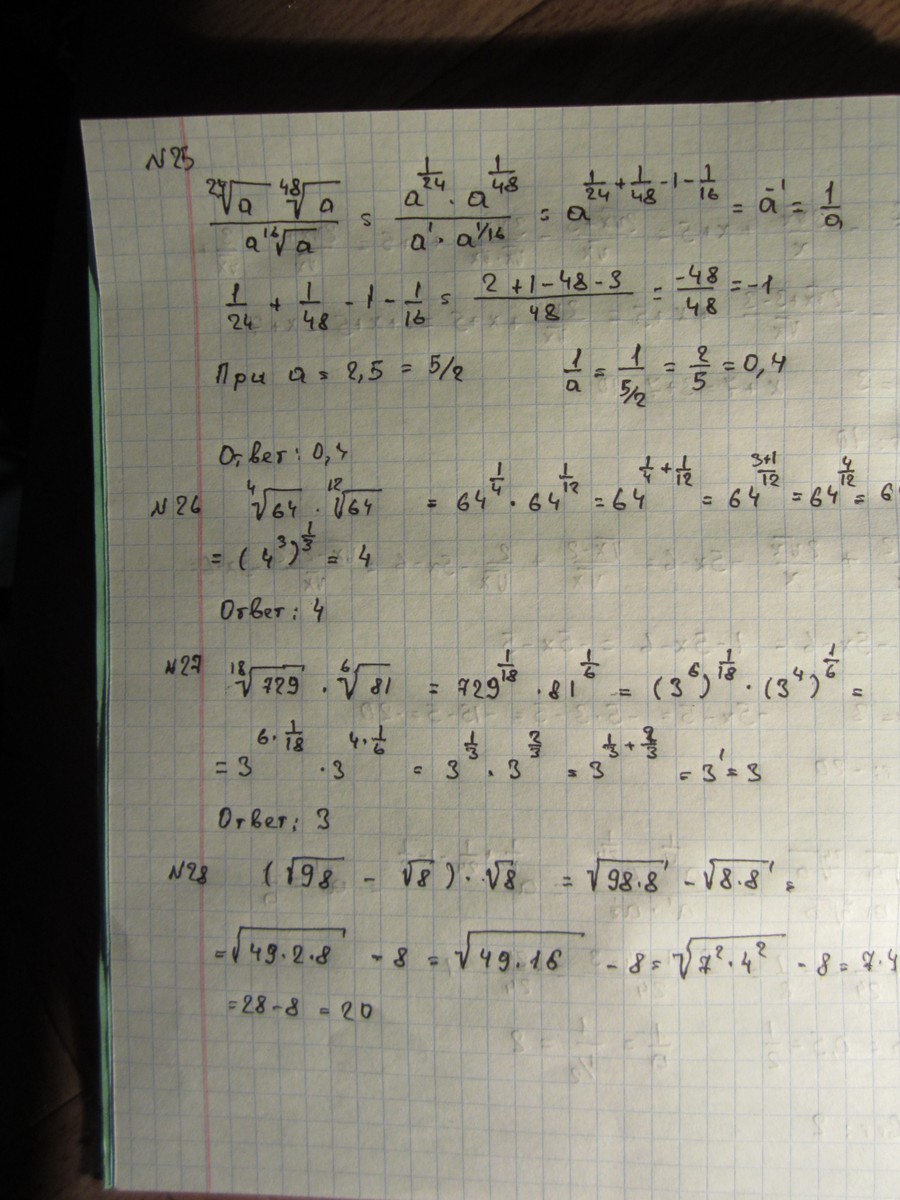 N25
²⁴√a ⁴⁸√a / a ¹⁶√a = a^(1/24) · a^(1/48) / a¹ · a^(1/16) = a^(1/24 + 1/48 - 1 - 1/16) = a⁻¹ = 1/a
1/24 + 1/48 - 1 - 1/16 = (2 + 1 - 48 - 3)/48 = -48/48 = -1
При a = 2,5 = 5/2 1/a = 1/(5/2) = 2/5 = 0,4
Ответ: 0,4
N26 ⁴√64 · ¹²√64 = 64^(1/4) · 64^(1/12) = 64^(1/4 + 1/12) = 64^((3+1)/12) = 64^(4/12) = 6
= (4³)^(1/3) = 4
Ответ: 4
N27 ¹⁸√729 · ⁶√81 = 729^(1/18) · 81^(1/6) = (3⁶)^(1/18) · (3⁴)^(1/6) =
= 3^(6·1/18) · 3^(4·1/6) = 3^(1/3) · 3^(2/3) = 3^(1/3 + 2/3) = 3¹ = 3
Ответ: 3
N28 (√98 - √8) · √8 = √98·8 - √8·8 =
= √49·2·8 - 8 = √49·16 - 8 = √7²·4² - 8 = 7·4
= 28 - 8 = 20